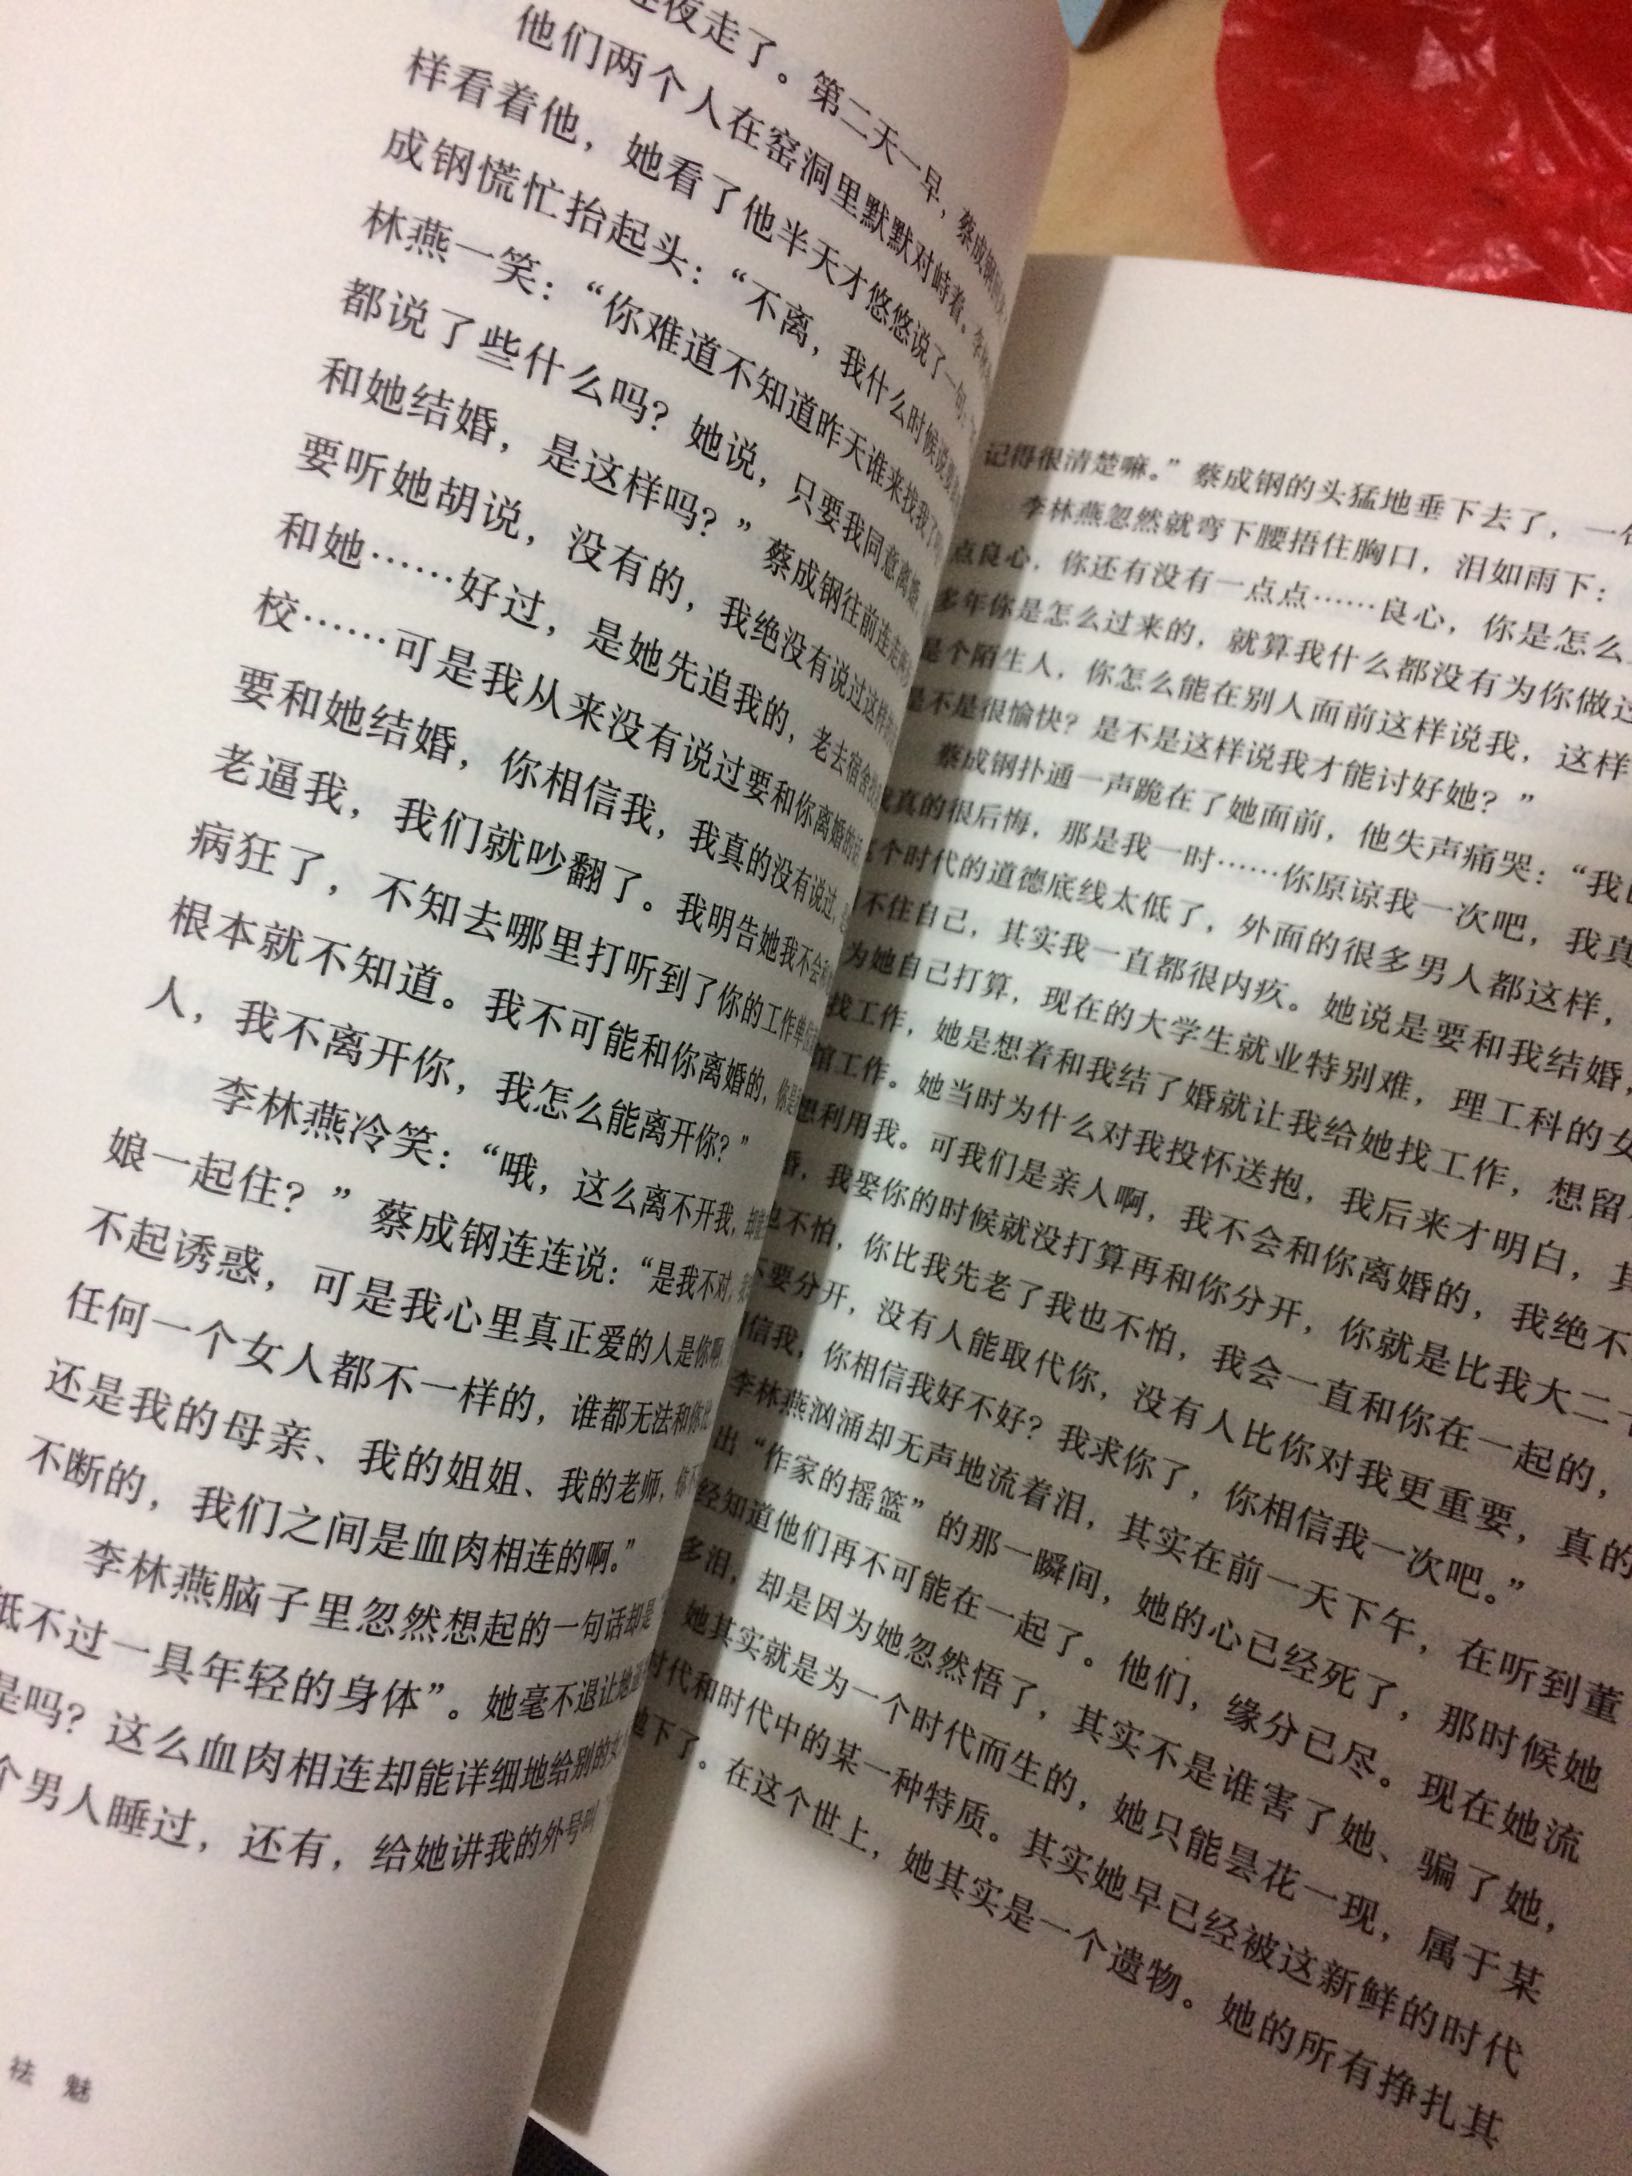 夜走了。第二天一早，蔡成钢
他们两个人在窑洞里默默对峙着。李林
样看着他，她看了他半天才悠悠说了一句：
成钢慌忙抬起头：“不离，我什么时候说要
林燕一笑：“你难道不知道昨天谁来找我了吗
都说了些什么吗？她说，只要我同意离婚，
和她结婚，是这样吗？”蔡成钢往前连走两
要听她胡说，没有的，我绝没有说过这样
和她……好过，是她先追我的，老去宿舍
校……可是我从来没有说过要和你离婚的
要和她结婚，你相信我，我真的没有说过，
老逼我，我们就吵翻了。我明告她我不会和
病狂了，不知去哪里打听到了你的工作单位
根本就不知道。我不可能和你离婚的，你是
人，我不离开你，我怎么能离开你？”
李林燕冷笑：“哦，这么离不开我，却
娘一起住？”蔡成钢连连说：“是我不对，我
不起诱惑，可是我心里真正爱的人是你啊，
任何一个女人都不一样的，谁都无法和你比
还是我的母亲、我的姐姐、我的老师，你
不断的，我们之间是血肉相连的啊。”
李林燕脑子里忽然想起的一句话却是
抵不过一具年轻的身体”。她毫不退让地
是吗？这么血肉相连却能详细地给别的女
个男人睡过，还有，给她讲我的外号叫
祛 魅
记得很清楚嘛。”蔡成钢的头猛地垂下去了，一
李林燕忽然就弯下腰捂住胸口，泪如雨下：
点良心，你还有没有一点点……良心，你是怎么
多年你是怎么过来的，就算我什么都没有为你做过
是个陌生人，你怎么能在别人面前这样说我，这样
是不是很愉快？是不是这样说我才能讨好她？”
蔡成钢扑通一声跪在了她面前，他失声痛哭：“我
我真的很后悔，那是我一时……你原谅我一次吧，我真
个时代的道德底线太低了，外面的很多男人都这样，
不住自己，其实我一直都很内疚。她说是要和我结婚，
为她自己打算，现在的大学生就业特别难，理工科的女
找工作，她是想着和我结了婚就让我给她找工作，想留
馆工作。她当时为什么对我投怀送抱，我后来才明白，其
想利用我。可我们是亲人啊，我不会和你离婚的，我绝不
婚，我娶你的时候就没打算再和你分开，你就是比我大二十
也不怕，你比我先老了我也不怕，我会一直和你在一起的，
不要分开，没有人能取代你，没有人比你对我更重要，真的
信我，你相信我好不好？我求你了，你相信我一次吧。”
李林燕汹涌却无声地流着泪，其实在前一天下午，在听到董
出“作家的摇篮”的那一瞬间，她的心已经死了，那时候她
经知道他们再不可能在一起了。他们，缘分已尽。现在她流
多泪，却是因为她忽然悟了，其实不是谁害了她、骗了她，
她其实就是为一个时代而生的，她只能昙花一现，属于某
时代和时代中的某一种特质。其实她早已经被这新鲜的时代
地下了。在这个世上，她其实是一个遗物。她的所有挣扎其